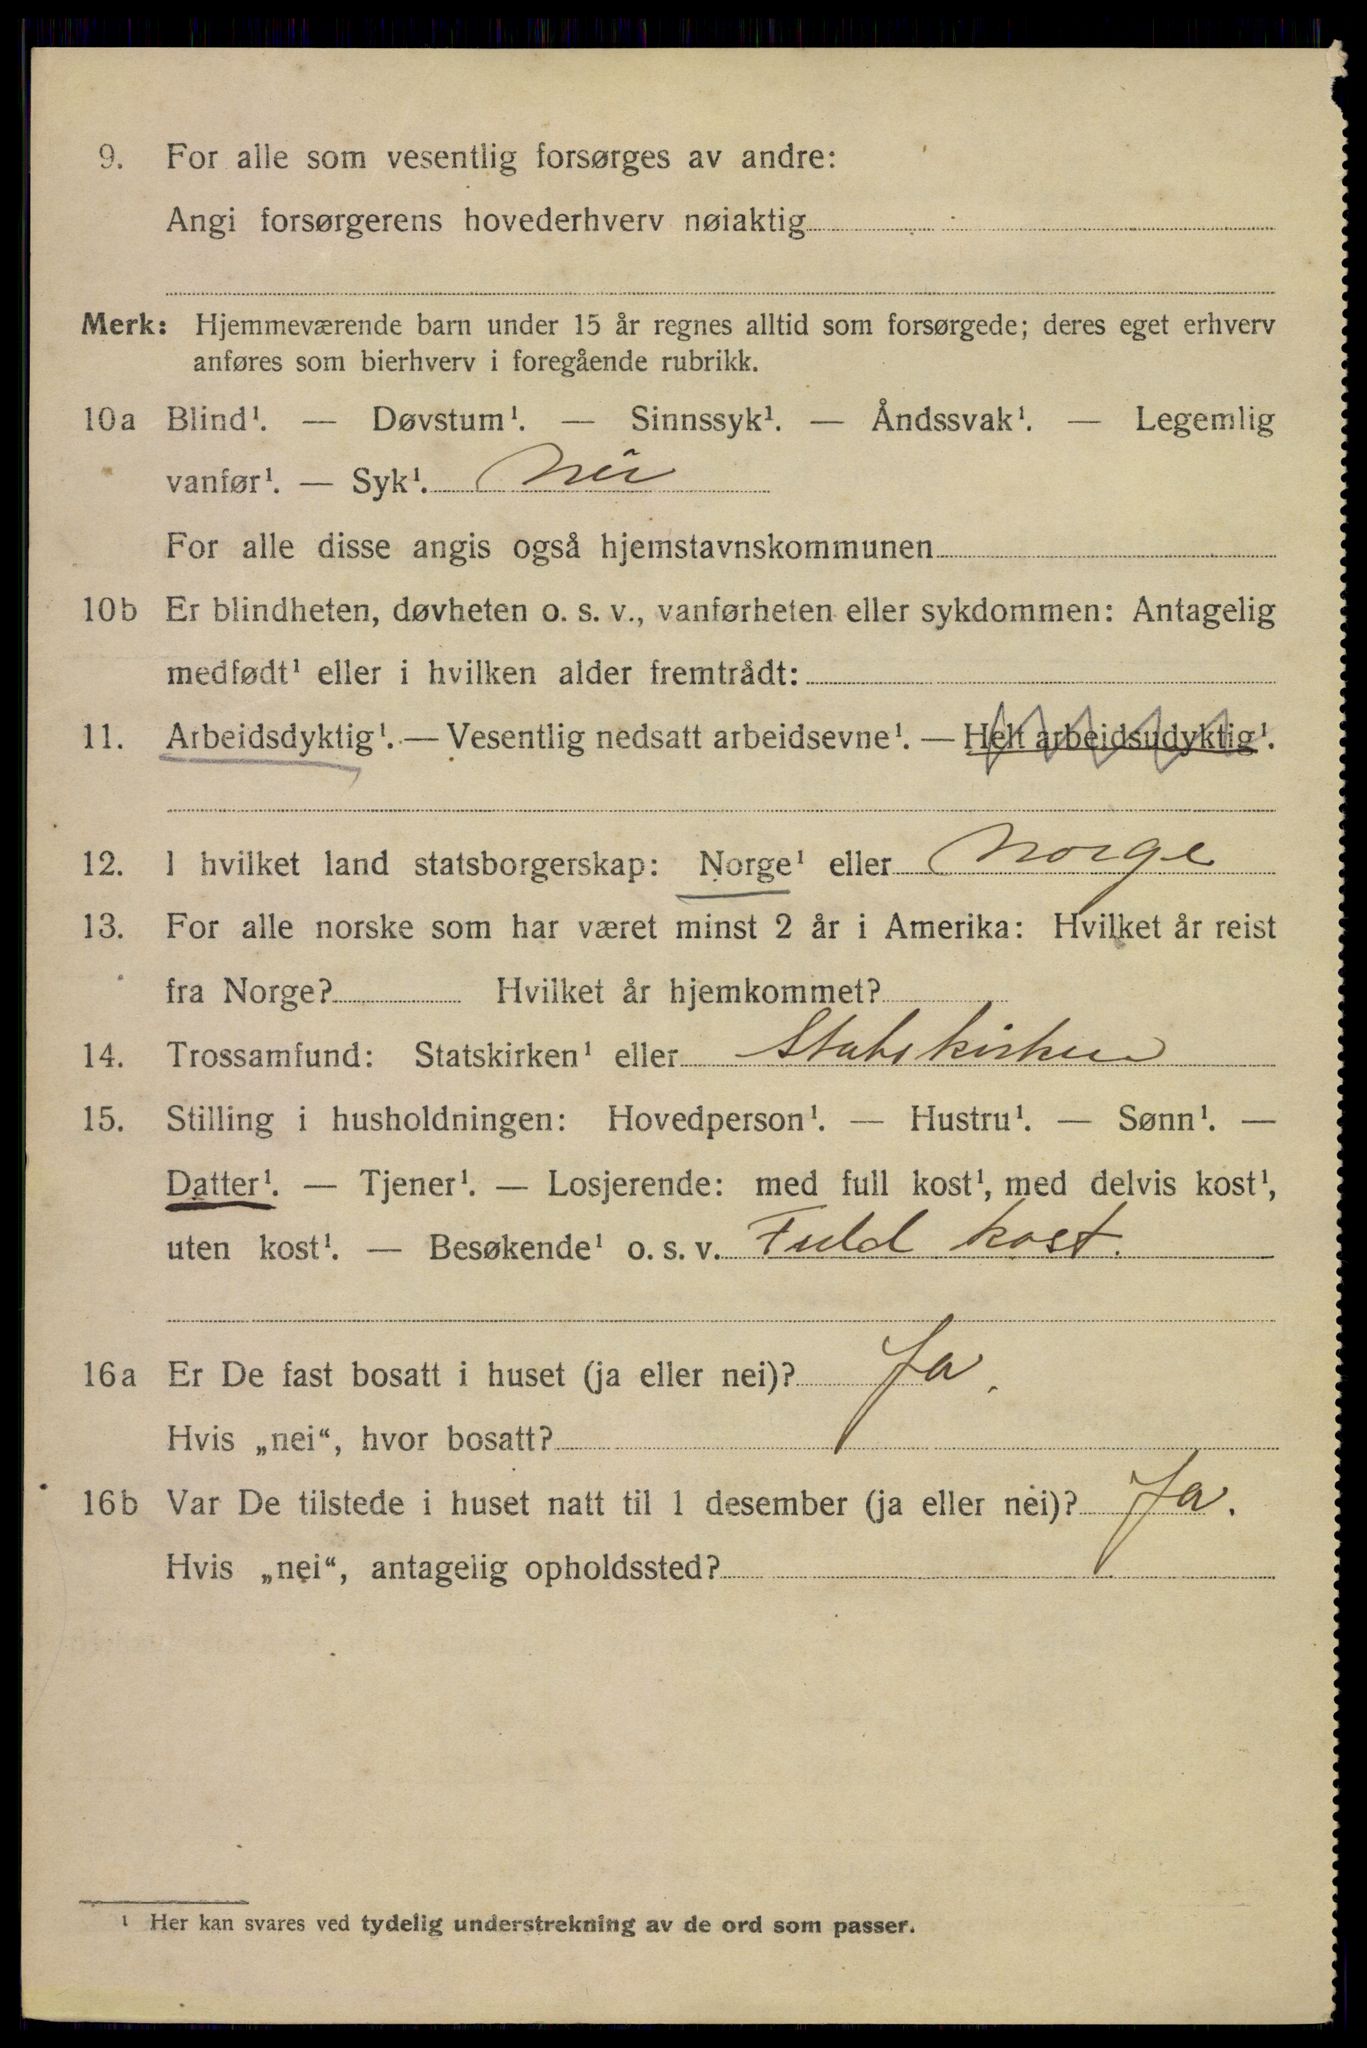 9. For alle som vesentlig forsørges av andre:
Angi forsørgerens hovederhverv nøiaktig
Merk: Hjemmeværende barn under 15 år regnes alltid som forsørgede; deres eget erhverv
anføres som bierhverv i foregående rubrikk.
10a Blind¹. — Døvstum¹. — Sinnssyk¹. — Åndssvak¹. — Legemlig
vanfør¹. — Syk¹. Nei
For alle disse angis også hjemstavnskommunen
10b Er blindheten, døvheten o. s. v., vanførheten eller sykdommen: Antagelig
medfødt¹ eller i hvilken alder fremtrådt:
11. Arbeidsdyktig¹. — Vesentlig nedsatt arbeidsevne¹. — Helt arbeidsudyktig¹.
12. I hvilket land statsborgerskap: Norge¹ eller Norge
13. For alle norske som har været minst 2 år i Amerika: Hvilket år reist
fra Norge? Hvilket år hjemkommet?
14. Trossamfund: Statskirken¹ eller Statskirken
15. Stilling i husholdningen: Hovedperson¹. — Hustru¹. — Sønn¹. —
Datter¹. — Tjener¹. — Losjerende: med full kost¹, med delvis kost¹,
uten kost¹. — Besøkende¹ o. s. v. Fuld kost.
16a Er De fast bosatt i huset (ja eller nei)? Ja.
Hvis „nei“, hvor bosatt?
16b Var De tilstede i huset natt til 1 desember (ja eller nei)? Ja.
Hvis „nei“, antagelig opholdssted?
¹ Her kan svares ved tydelig understrekning av de ord som passer.